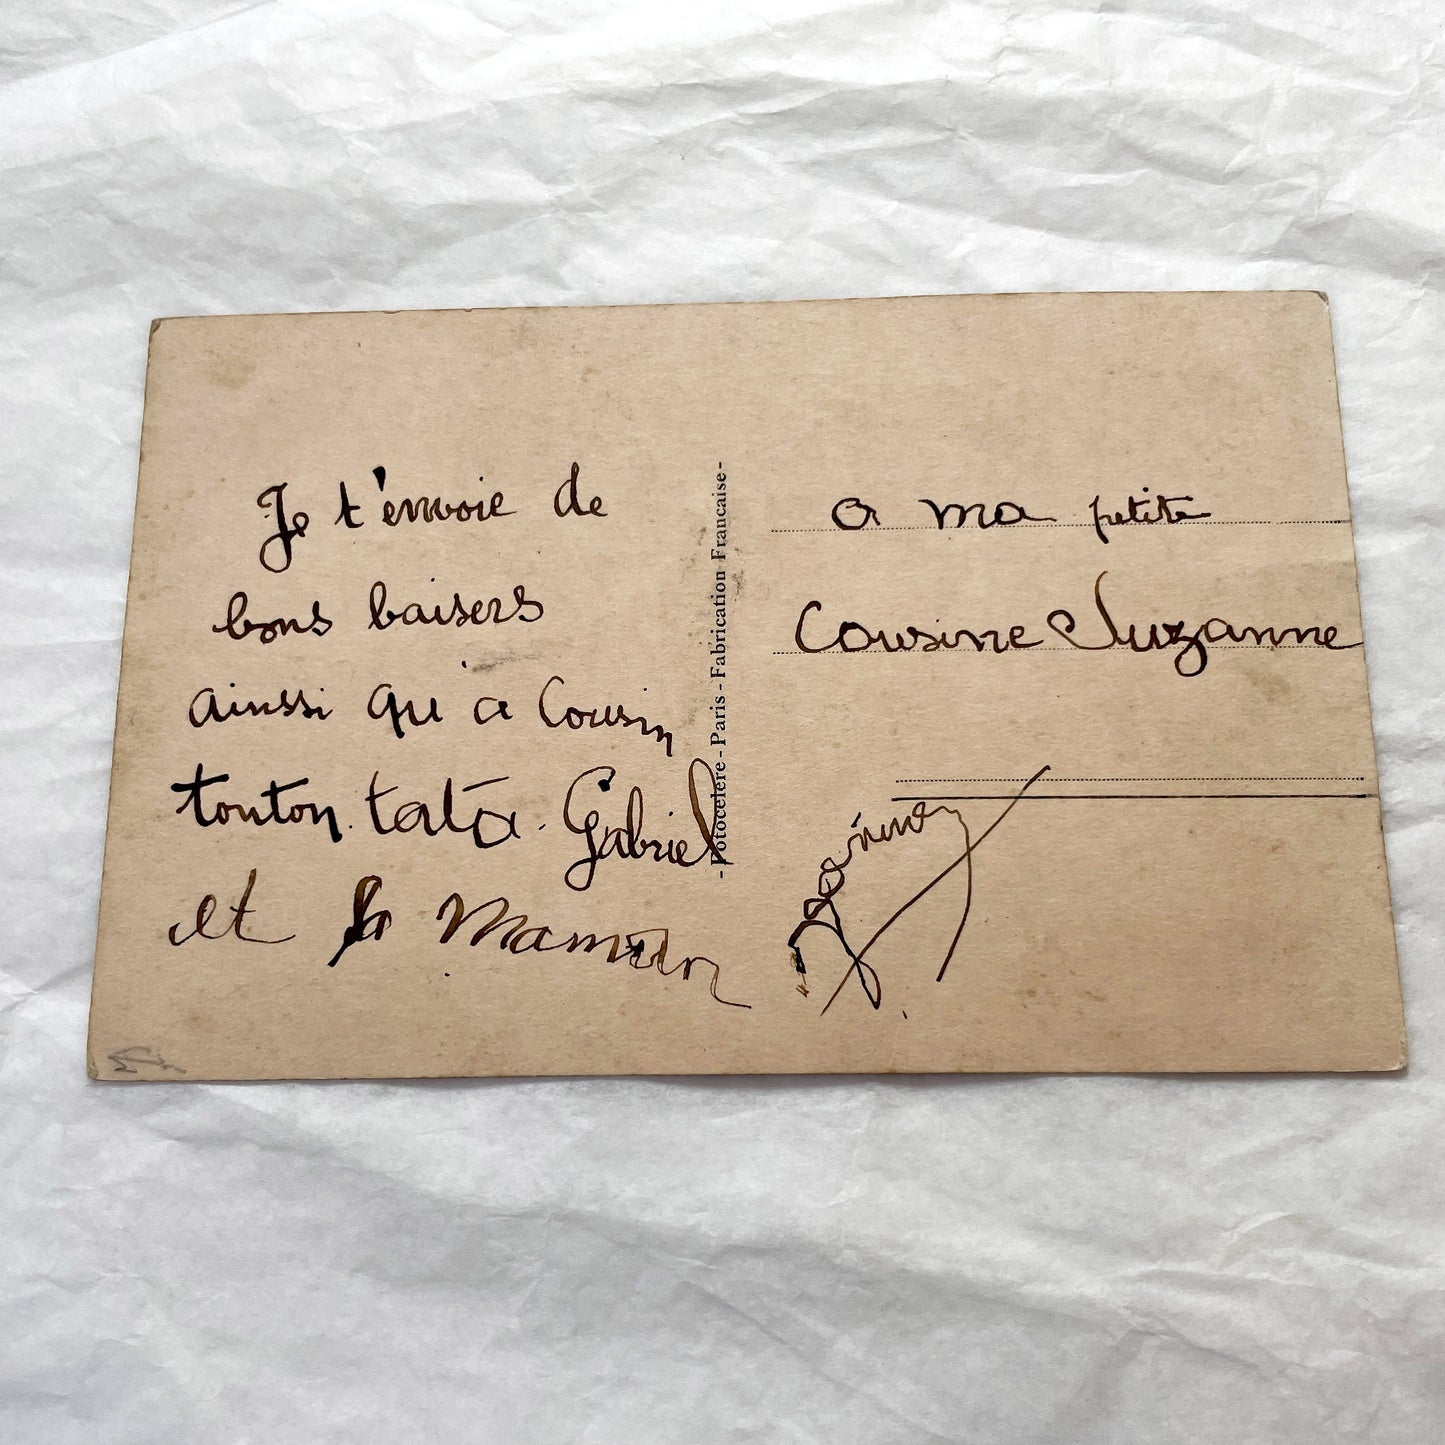 Je t'envoie de
bons baisers
ainsi qu'a Cousin
tonton tata Gabriel
et la Maman
- Fotocelere - Paris - Fabrication Francaise -
a ma petite
Cousine Suzanne